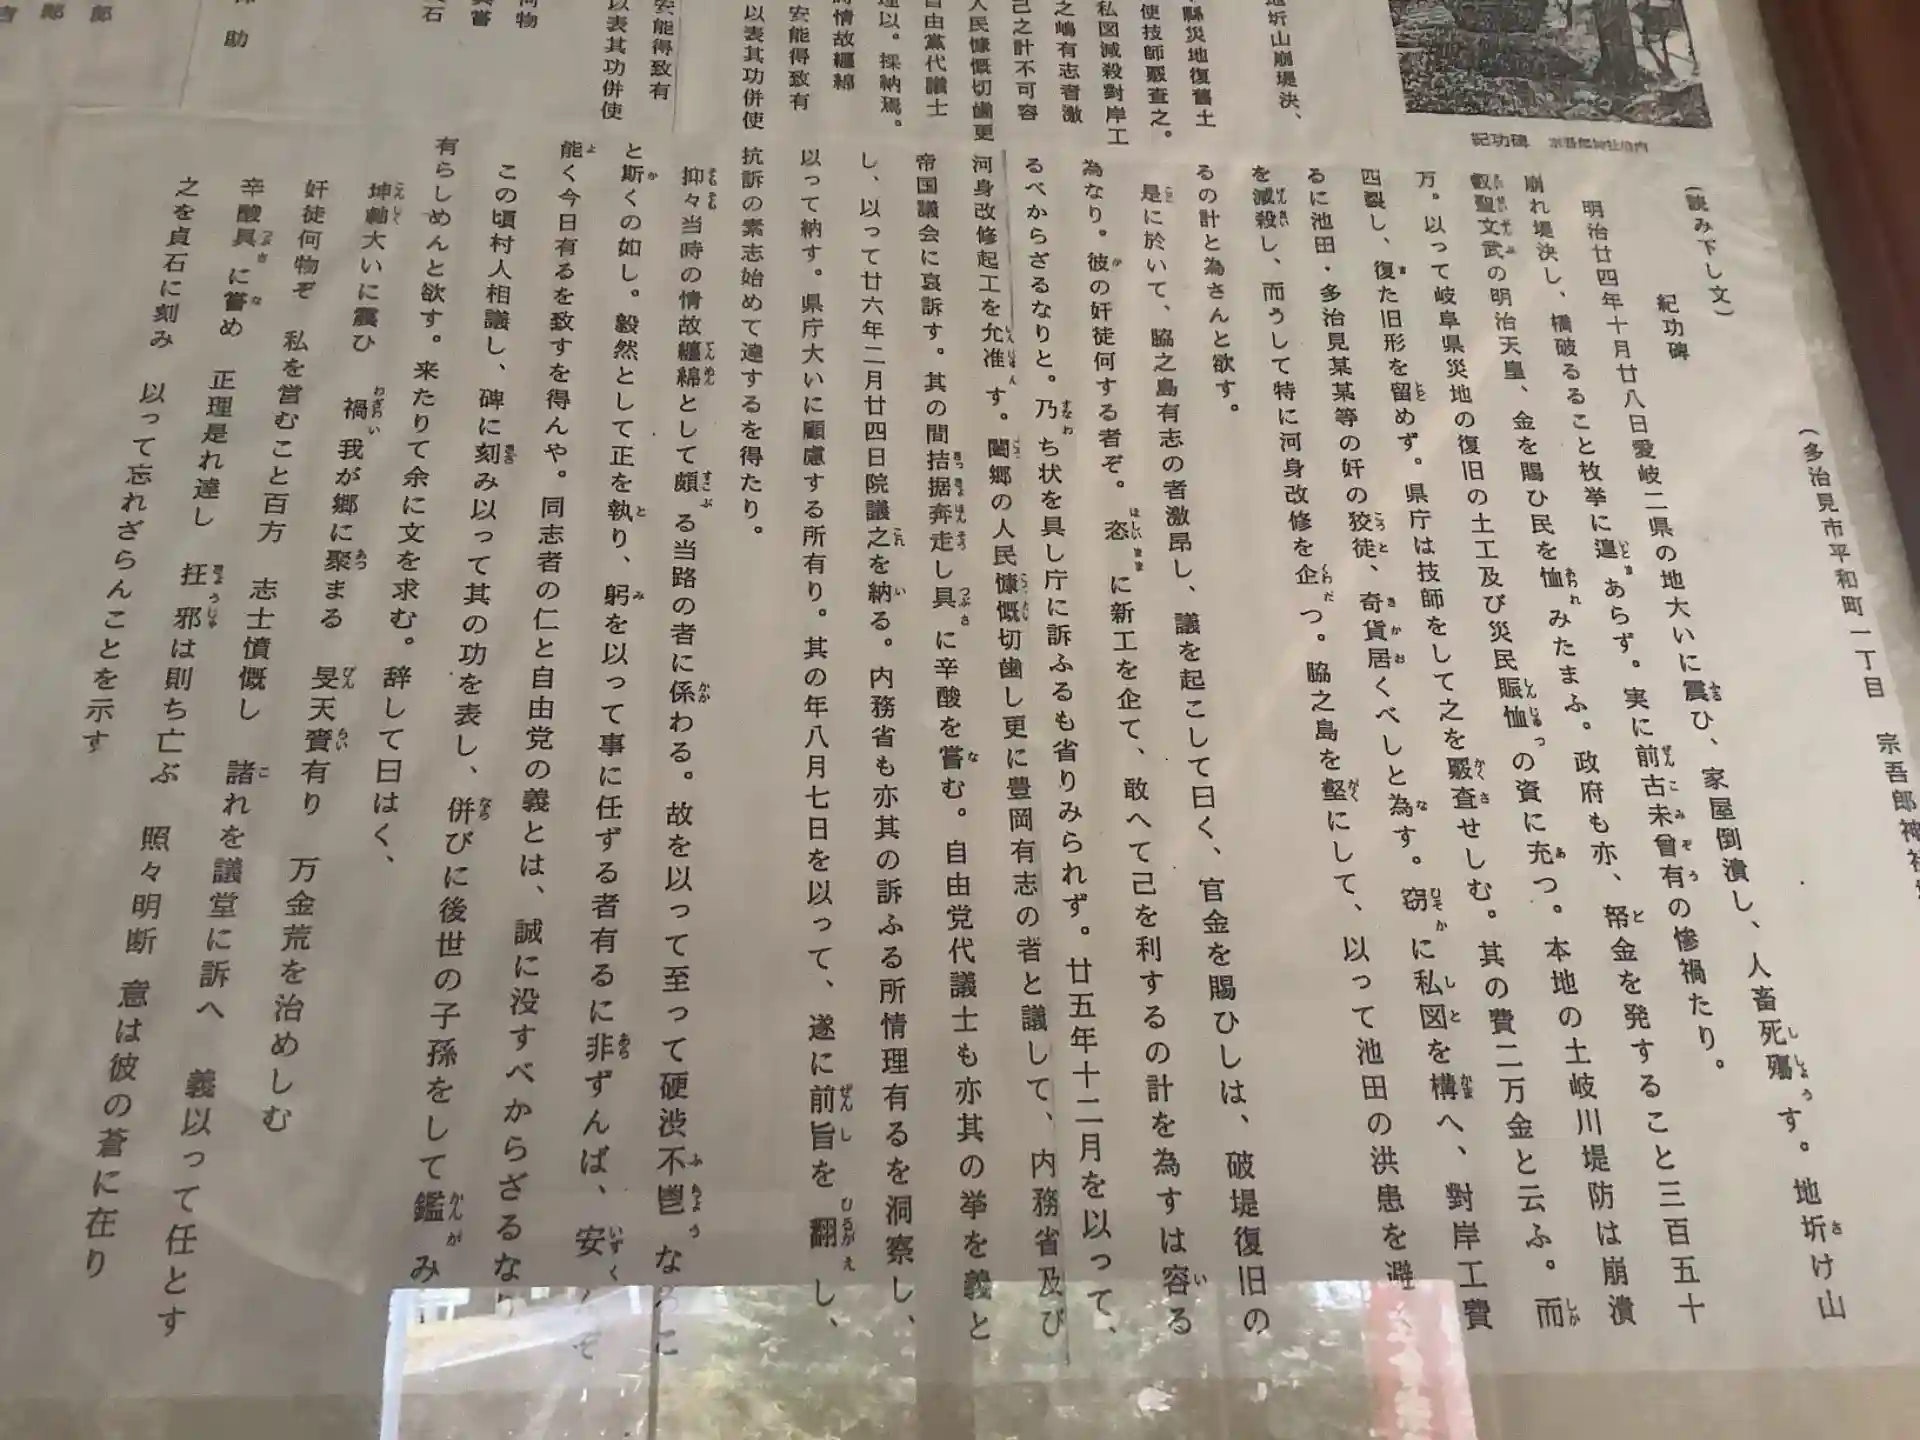 紀功碑 宗吾郎神社境内
地圻山崩堤決、
縣災地復舊土
使技師覈査之。
私図減殺對岸工
之嶋有志者激
己之計不可容
人民慷慨切歯更
自由黨代議士
理以。採納焉。
情故纏綿
安能得致有
以表其功併使
安能得致有
以表其功併使
何物
嘗
石
助
郎
(読み下し文)
紀功碑
(多治見市平和町一丁目 宗吾郎神社
明治廿四年十月廿八日愛岐二県の地大いに震ひ、家屋倒潰し、人畜死殤す。地圻け山
崩れ堤決し、橋破るること枚挙に遑あらず。実に前古未曾有の惨禍たり。
叡聖文武の明治天皇、金を賜ひ民を恤れみたまふ。政府も亦、帑金を発すること三百五十
万。以って岐阜県災地の復旧の土工及び災民賑恤の資に充つ。本地の土岐川堤防は崩潰
四裂し、復た旧形を留めず。県庁は技師をして之を覈査せしむ。其の費二万金と云ふ。而
るに池田・多治見某某等の奸の狡徒、奇貨居くべしと為す。窃かに私図を構へ、對岸工費
を減殺し、而うして特に河身改修を企つ。脇之島を壑にして、以って池田の洪患を避
るの計と為さんと欲す。
是に於いて、脇之島有志の者激昂し、議を起こして曰く、官金を賜ひしは、破堤復旧の
為なり。彼の奸徒何する者ぞ。恣に新工を企て、敢へて己を利するの計を為すは容る
るべからざるなりと。乃ち状を具し庁に訴ふるも省りみられず。廿五年十二月を以って、
河身改修起工を允准す。闔郷の人民慷慨切歯し更に豊岡有志の者と議して、内務省及び
帝国議会に哀訴す。其の間拮据奔走し具に辛酸を嘗む。自由党代議士も亦其の挙を義と
し、以って廿六年二月廿四日院議之を納る。内務省も亦其の訴ふる所情理有るを洞察し、
以って納す。県庁大いに顧慮する所有り。其の年八月七日を以って、遂に前旨を翻し、
抗訴の素志始めて達するを得たり。
抑々当時の情故纏綿として頗る当路の者に係わる。故を以って至って硬渋不鬯なるこ
と斯くの如し。毅然として正を執り、躬を以って事に任ずる者有るに非ずんば、安くんぞ
能く今日有るを致すを得んや。同志者の仁と自由党の義とは、誠に没すべからざるなり
この頃村人相議し、碑に刻み以って其の功を表し、併びに後世の子孫をして鑑み
有らしめんと欲す。来たりて余に文を求む。辞して曰はく、
坤軸大いに震ひ 禍我が郷に聚まる 旻天賚有り 万金荒を治めしむ
奸徒何物ぞ 私を営むこと百方 志士憤慨し 諸れを議堂に訴へ 義以って任とす
辛酸具に嘗め 正理是れ達し 抂邪は則ち亡ぶ 照々明断 意は彼の蒼に在り
之を貞石に刻み 以って忘れざらんことを示す